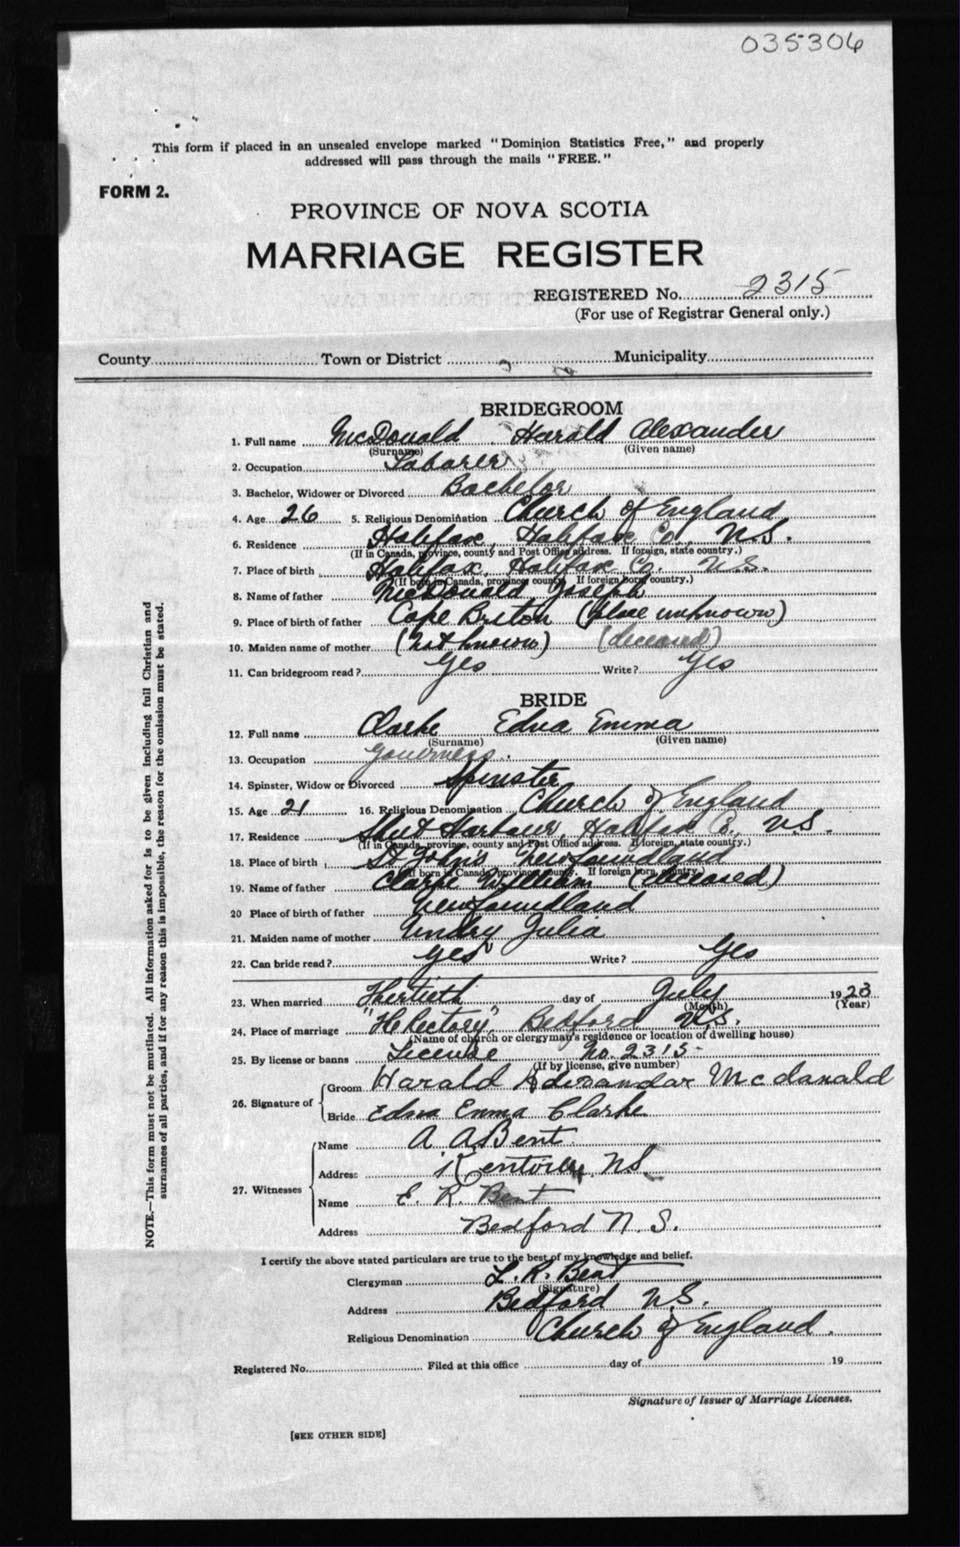 035306
This form if placed in an unsealed envelope marked "Dominion Statistics Free," and properly
addressed will pass through the mails "FREE."
FORM 2.
PROVINCE OF NOVA SCOTIA
MARRIAGE REGISTER
REGISTERED No. 2315
(For use of Registrar General only.)
County Town or District Municipality
BRIDEGROOM
1. Full name McDonald Harald Alexander
(Surname) (Given name)
2. Occupation Laborer
3. Bachelor, Widower or Divorced Bachelor
4. Age 26 5. Religious Denomination Church of England
6. Residence Halifax, Halifax Co., N.S.
(If in Canada, province, county and Post Office address. If foreign, state country.)
7. Place of birth Halifax, Halifax Co. N.S.
(If born in Canada, province, county. If foreign born, country.)
8. Name of father McDonald, Joseph
9. Place of birth of father Cape Breton (place unknown)
10. Maiden name of mother (not known) (deceased)
11. Can bridegroom read? Yes Write? Yes
BRIDE
12. Full name Clarke Edna Emma
(Surname) (Given name)
13. Occupation Governess.
14. Spinster, Widow or Divorced Spinster
15. Age 21 16. Religious Denomination Church of England
17. Residence Harbour, Halifax Co., N.S.
(If in Canada, province, county and Post Office address. If foreign, state country.)
18. Place of birth St John's Newfoundland
(If born in Canada, province, county. If foreign born, country.)
19. Name of father Clarke William (deceased)
20 Place of birth of father Newfoundland
21. Maiden name of mother Julia
22. Can bride read? Yes Write? Yes
23. When married Thirtieth day of July 1923
(Month) (Year)
24. Place of marriage "The Rectory" Bedford N.S.
(Name of church or clergyman's residence or location of dwelling house)
25. By license or banns License No. 2315
(If by license, give number)
26. Signature of Groom Harald Alexandar Mcdanald
Bride Edna Emma Clarke
27. Witnesses Name A. A Bent
Address Kentville, N.S.
Name E. R. Bent
Address Bedford N. S.
I certify the above stated particulars are true to the best of my knowledge and belief.
Clergyman L. R. Bent
(Signature)
Address Bedford N.S.
Religious Denomination Church of England.
Registered No. Filed at this office day of 19
Signature of Issuer of Marriage Licenses.
[SEE OTHER SIDE]
NOTE.—This form must not be mutilated. All information asked for is to be given including full Christian and
surnames of all parties, and if for any reason this is impossible, the reason for the omission must be stated.